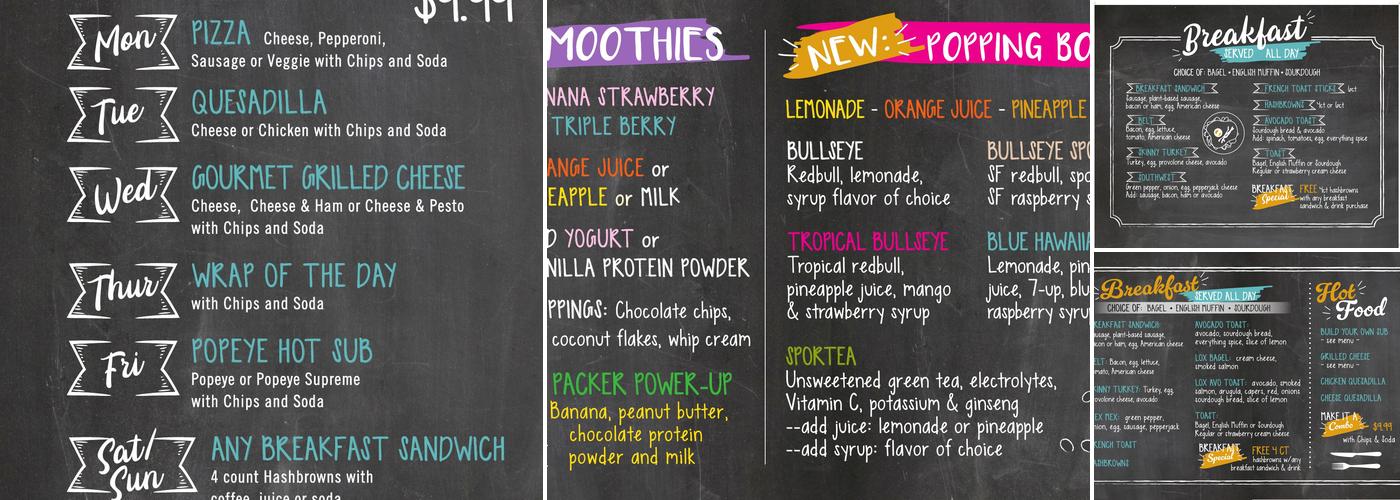 $9.99
Mon PIZZA Cheese, Pepperoni,
Sausage or Veggie with Chips and Soda
Tue QUESADILLA
Cheese or Chicken with Chips and Soda
Wed GOURMET GRILLED CHEESE
Cheese, Cheese & Ham or Cheese & Pesto
with Chips and Soda
Thur WRAP OF THE DAY
with Chips and Soda
Fri POPEYE HOT SUB
Popeye or Popeye Supreme
with Chips and Soda
Sat/
Sun ANY BREAKFAST SANDWICH
4 count Hashbrowns with
coffee, juice or soda
MOOTHIES
NANA STRAWBERRY
TRIPLE BERRY
ANGE JUICE or
EAPPLE or MILK
O YOGURT or
NILLA PROTEIN POWDER
PPINGS: Chocolate chips,
coconut flakes, whip cream
PACKER POWER-UP
Banana, peanut butter,
chocolate protein
powder and milk
NEW: POPPING BO
LEMONADE - ORANGE JUICE - PINEAPPLE
BULLSEYE
Redbull, lemonade,
syrup flavor of choice
BULLSEYE SPO
SF redbull, spo
SF raspberry s
TROPICAL BULLSEYE
Tropical redbull,
pineapple juice, mango
& strawberry syrup
BLUE HAWAIIA
Lemonade, pin
juice, 7-up, blu
raspberry syru
SPORTEA
Unsweetened green tea, electrolytes,
Vitamin C, potassium & ginseng
--add juice: lemonade or pineapple
--add syrup: flavor of choice
Breakfast
SERVED ALL DAY
CHOICE OF: BAGEL • ENGLISH MUFFIN • SOURDOUGH
BREAKFAST SANDWICH
Sausage, plant-based sausage,
bacon or ham, egg, American cheese
BELT
Bacon, egg, lettuce,
tomato, American cheese
SKINNY TURKEY
Turkey, egg, provolone cheese, avocado
SOUTHWEST
Green pepper, onion, egg, pepperjack cheese
Add: sausage, bacon, ham or avocado
FRENCH TOAST STICKS 6ct
HASHBROWNS 4ct or 6ct
AVOCADO TOAST
Sourdough bread & avocado
Add: spinach, tomatoes, egg, everything spice
TOAST
Bagel, English Muffin or Sourdough
Regular or strawberry cream cheese
BREAKFAST Special FREE 4ct hashbrowns
with any breakfast
sandwich & drink purchase
Breakfast
SERVED ALL DAY
CHOICE OF: BAGEL • ENGLISH MUFFIN • SOURDOUGH
REAKFAST SANDWICH:
usage, plant-based sausage,
con or ham, egg, American cheese
ELT: Bacon, egg, lettuce,
mato, American cheese
INNY TURKEY: Turkey, egg,
ovolone cheese, avocado
EX MEX: green pepper,
nion, egg, sausage, pepperjack
RENCH TOAST
ASHBROWNS
AVOCADO TOAST:
avocado, sourdough bread,
everything spice, slice of lemon
LOX BAGEL: cream cheese,
smoked salmon
LOX AVO TOAST: avocado, smoked
salmon, arugula, capers, red, onions
sourdough bread, slice of lemon
TOAST:
Bagel, English Muffin or Sourdough
Regular or strawberry cream cheese
BREAKFAST Special FREE 4 CT
hashbrowns w/any
breakfast sandwich & drink
Hot
Food
BUILD YOUR OWN SUB
- see menu -
GRILLED CHEESE
- see menu -
CHICKEN QUESADILLA
CHEESE QUESADILLA
MAKE IT A
Combo $9.99
with Chips & Soda